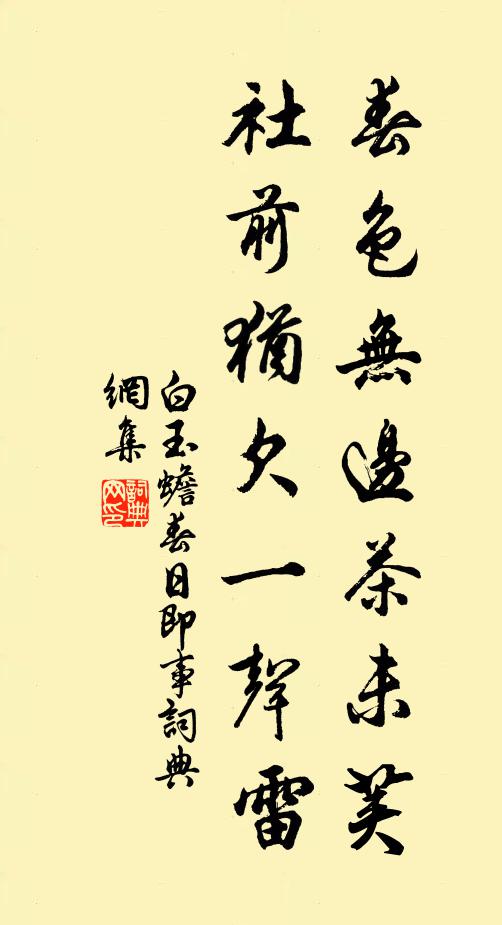 春色無邊茶未莢
社前猶欠一聲雷
白玉蟾春日即事詞典
網集
詞典
网印